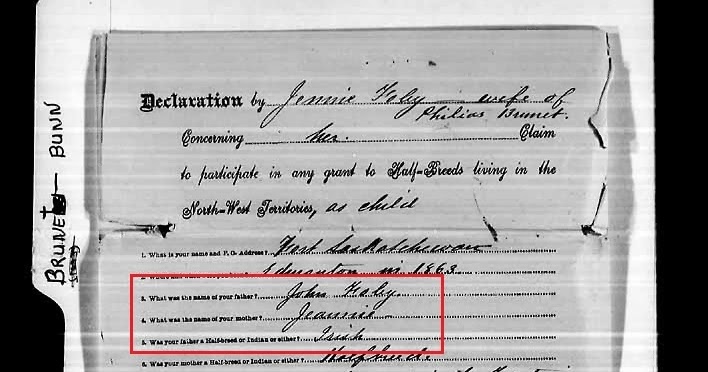 BRUNET - BUNN
Declaration by Jennie Foley wife of
Philias Brunet.
Concerning her Claim
to participate in any grant to Half-Breeds living in the
North-West Territories, as child
1. What is your name and P. O. Address? Fort Saskatchewan
Edmonton in 1863
3. What was the name of your father? John Foley
4. What was the name of your mother? Jeannie
5. Was your father a Half-breed or Indian or either? Irish
6. Was your mother a Half-breed or Indian or either? Halfbreed.